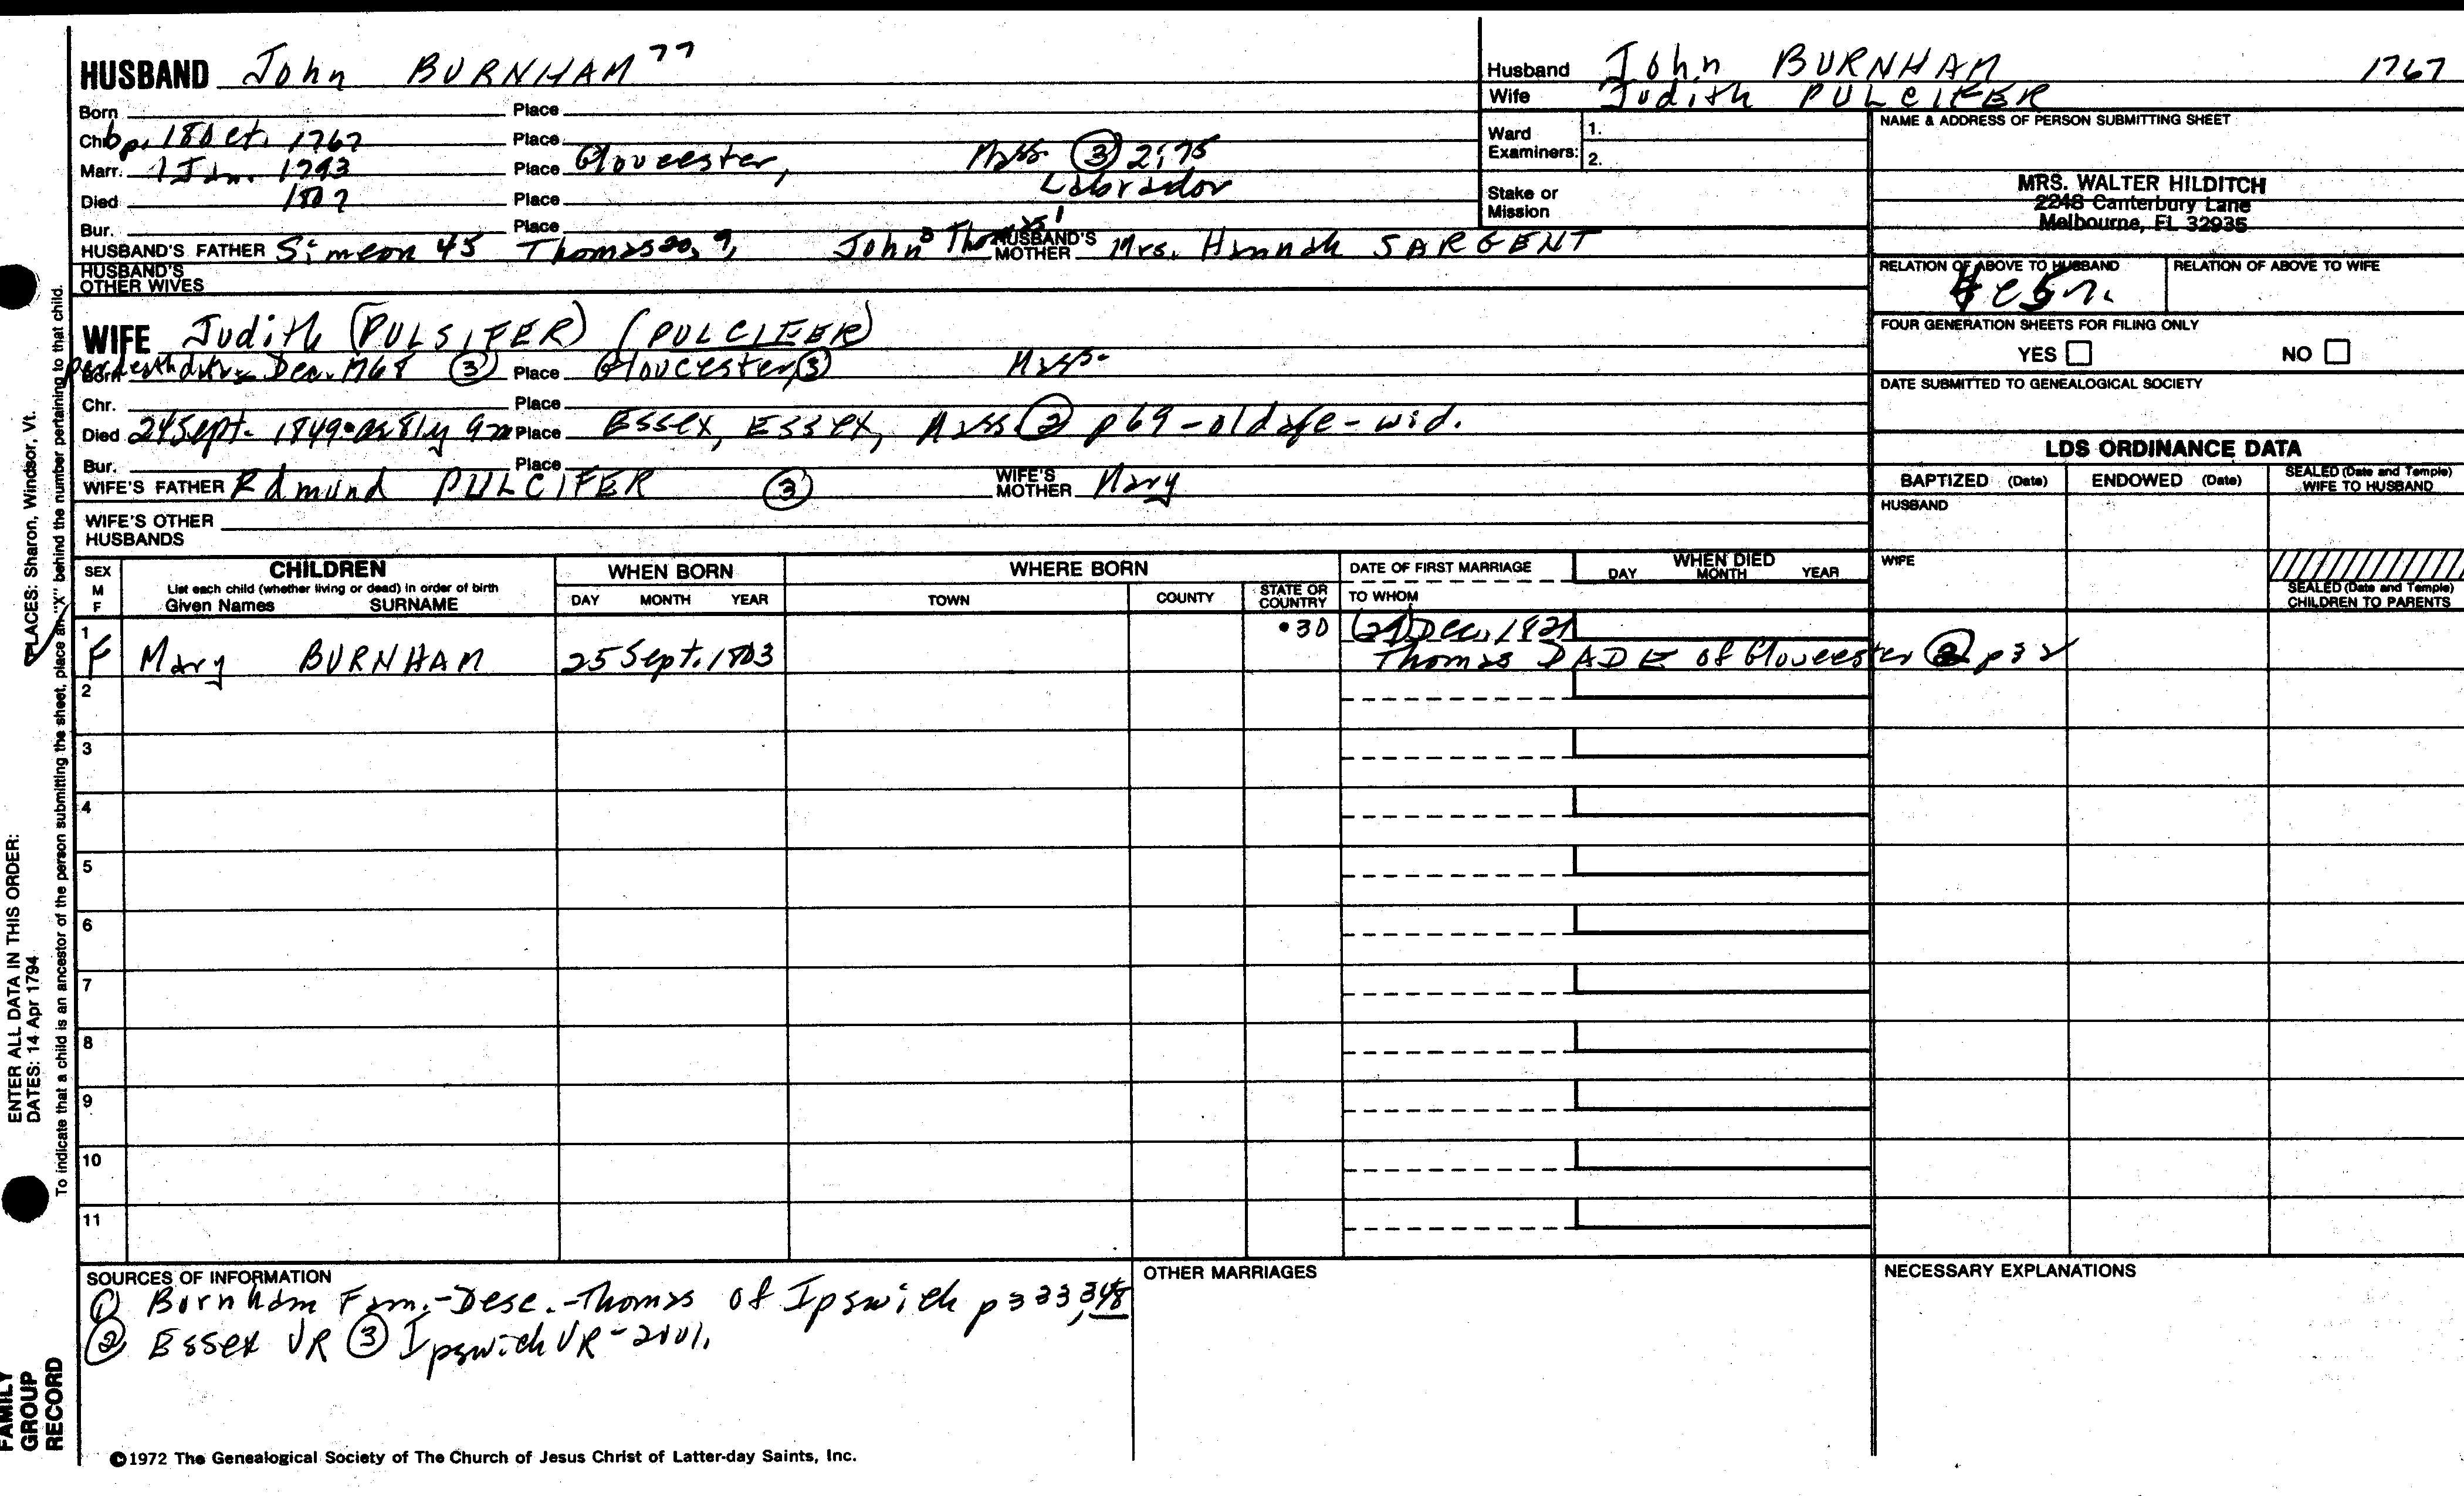 HUSBAND John BURNHAM 77
Born Place
Chr bp. 18 Oct. 1767 Place
Marr. 1 Jan. 1793 Place Gloucester, Mass. (3) 2:75
Died 180? Place Labrador
Bur. Place
HUSBAND'S FATHER Simeon 45 Thomas 20, 9, John 3 Thomas 1 HUSBAND'S MOTHER Mrs. Hannah SARGENT
HUSBAND'S OTHER WIVES
WIFE Judith (PULSIFER) (PULCIFER)
Born per death Dec. 1768 (3) Place Gloucester (3) Mass.
Chr. Place
Died 24 Sept. 1849 ae 81y 9m Place Essex, Essex, Mass (2) p69 - old age - wid.
Bur. Place
WIFE'S FATHER Edmund PULCIFER (3) WIFE'S MOTHER Mary
WIFE'S OTHER HUSBANDS
Husband John BURNHAM 1767
Wife Judith PULCIFER
Ward Examiners: 1.
2.
Stake or Mission
NAME & ADDRESS OF PERSON SUBMITTING SHEET
MRS. WALTER HILDITCH
2248 Canterbury Lane
Melbourne, FL 32935
RELATION OF ABOVE TO HUSBAND RELATION OF ABOVE TO WIFE
FOUR GENERATION SHEETS FOR FILING ONLY
YES NO
DATE SUBMITTED TO GENEALOGICAL SOCIETY
LDS ORDINANCE DATA
BAPTIZED (Date) ENDOWED (Date) SEALED (Date and Temple) WIFE TO HUSBAND
HUSBAND
WIFE
SEALED (Date and Temple) CHILDREN TO PARENTS
SEX M F
CHILDREN
List each child (whether living or dead) in order of birth
Given Names SURNAME
WHEN BORN
DAY MONTH YEAR
WHERE BORN
TOWN COUNTY STATE OR COUNTRY
DATE OF FIRST MARRIAGE
TO WHOM
WHEN DIED
DAY MONTH YEAR
1 •30 Dec. 1821
F Mary BURNHAM 25 Sept. 1803 Thomas DADE of Gloucester (2) p32
2
3
4
5
6
7
8
9
10
11
SOURCES OF INFORMATION
(1) Burnham Fam. - Desc. - Thomas of Ipswich p333, 348
(2) Essex VR (3) Ipswich VR -
OTHER MARRIAGES
NECESSARY EXPLANATIONS
©1972 The Genealogical Society of The Church of Jesus Christ of Latter-day Saints, Inc.
FAMILY GROUP RECORD
ENTER ALL DATA IN THIS ORDER:
DATES: 14 Apr 1794
PLACES: Sharon, Windsor, Vt.
To indicate that a child is an ancestor of the person submitting the sheet, place an "X" behind the number pertaining to that child.